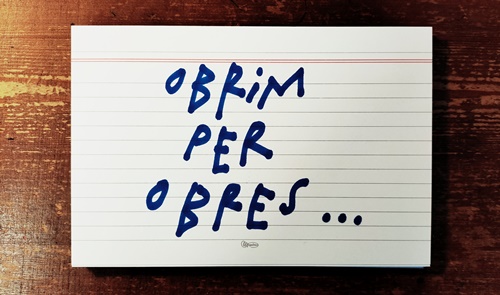 OBRiM
PER
OBRES...